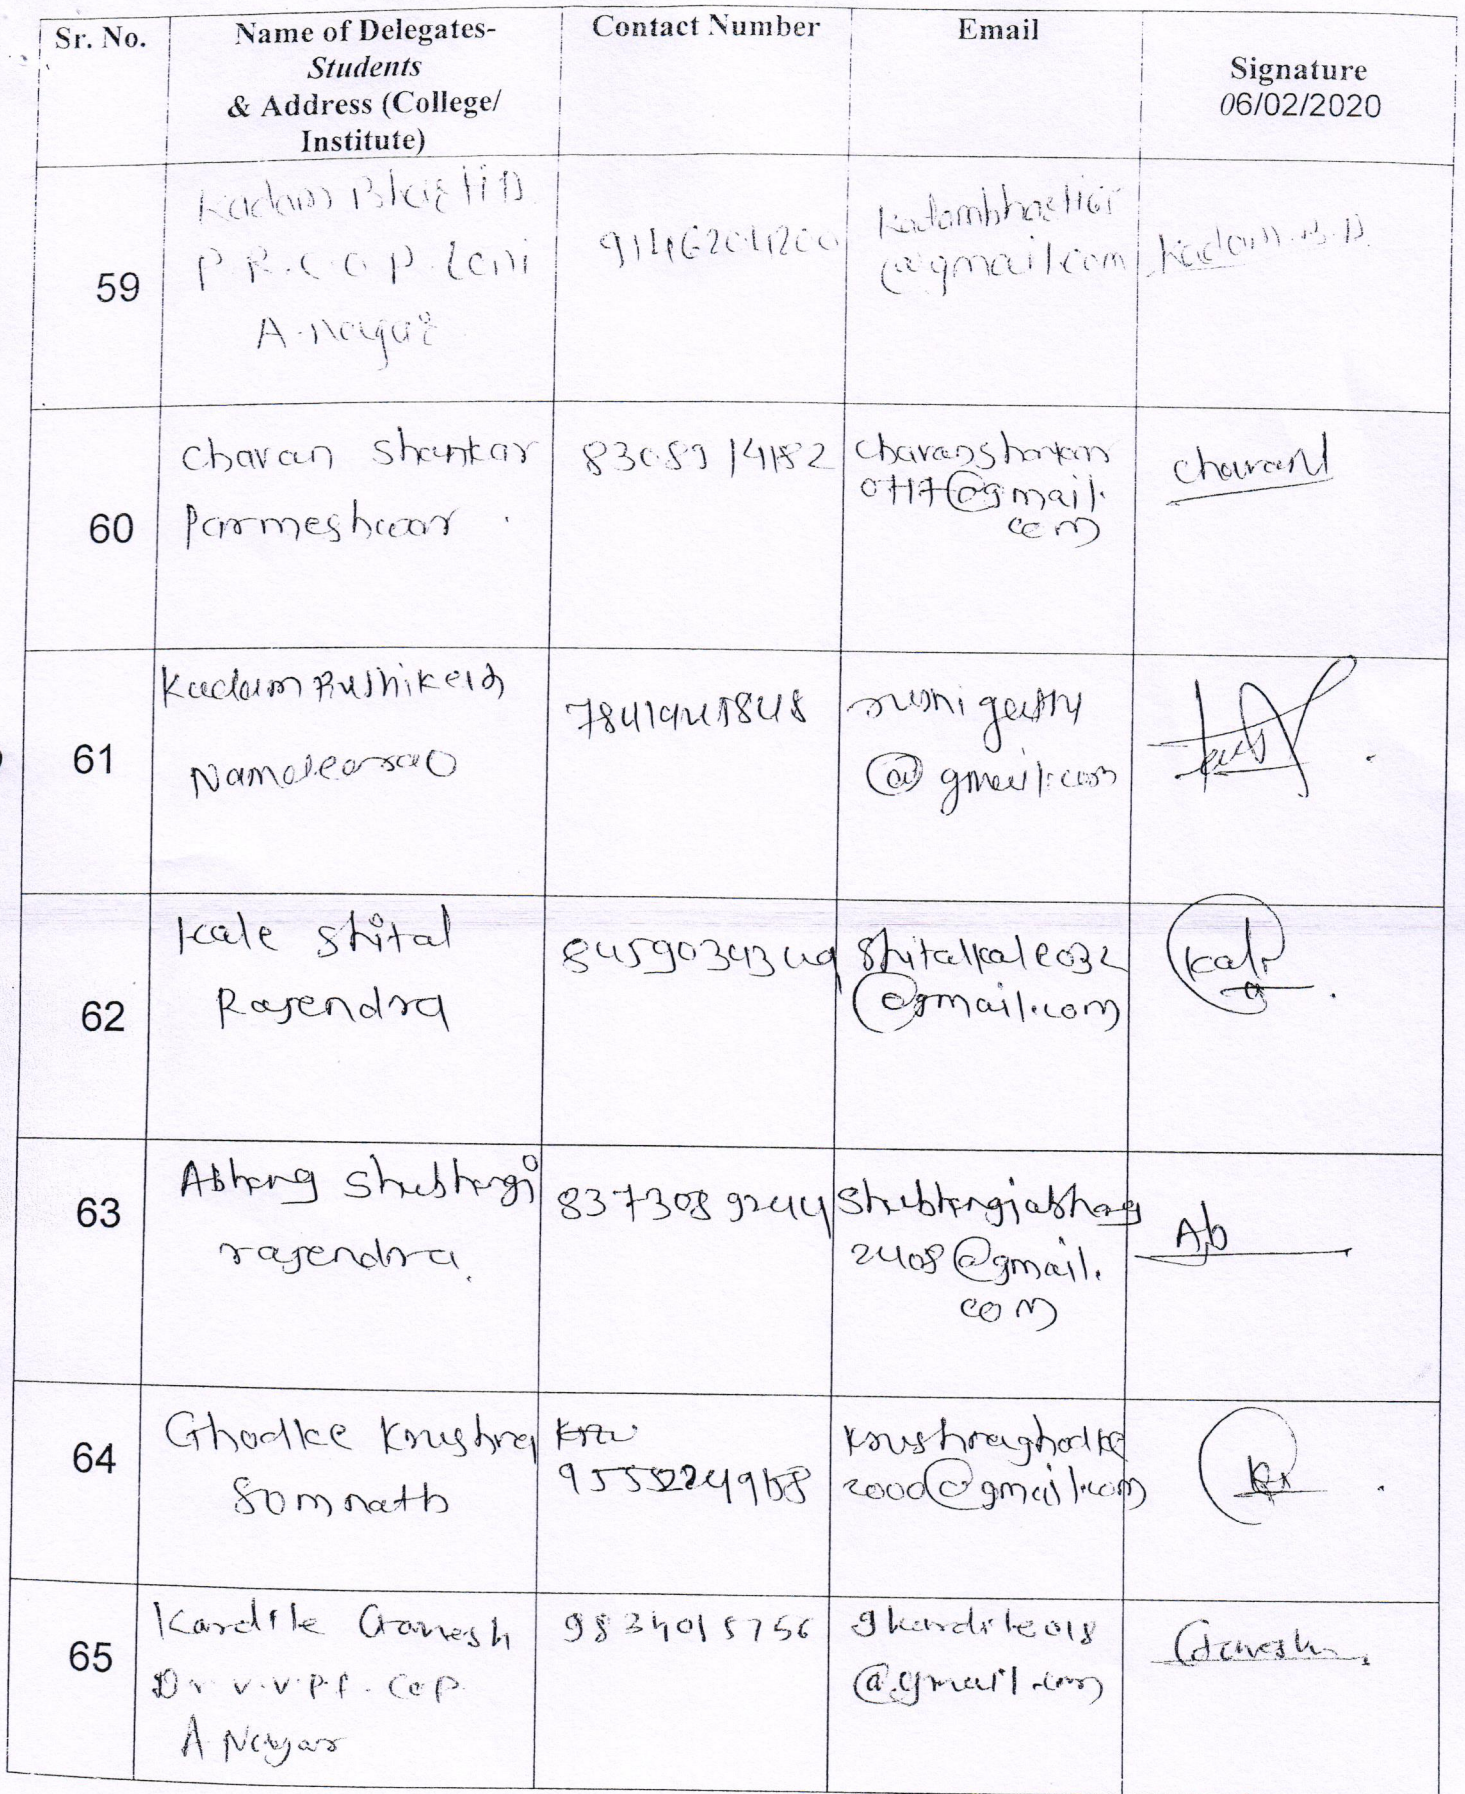 Sr. No.
Name of Delegates-
Students
& Address (College/
Institute)
Contact Number
Email
Signature
06/02/2020
59
Kadam
P.R.C.O.P. Loni
A.nagar
@gmail.com
Kadam.B.D.
60
Chavan Shankar
Parmeshwar
8308914182
Chavanshankar
0717@gmail.
com
Chavan
61
Kadam Rushikesh
Namdeorao
@gmail.com
62
Kale Shital
Rajendra
8459034349
Shitalkale032
@gmail.com
Kale
63
Abhang Shubhangi
rajendra.
8373089244
Shubhangiabhang
2408@gmail.
com
Ab
64
Ghodke Krushna
Somnath
krushnaghodke
2000@gmail.com
65
Kardile Ganesh
Dr. V.V.P.F. COP
A.Nagar
9834015756
gkardile018
@gmail.com
Ganesh